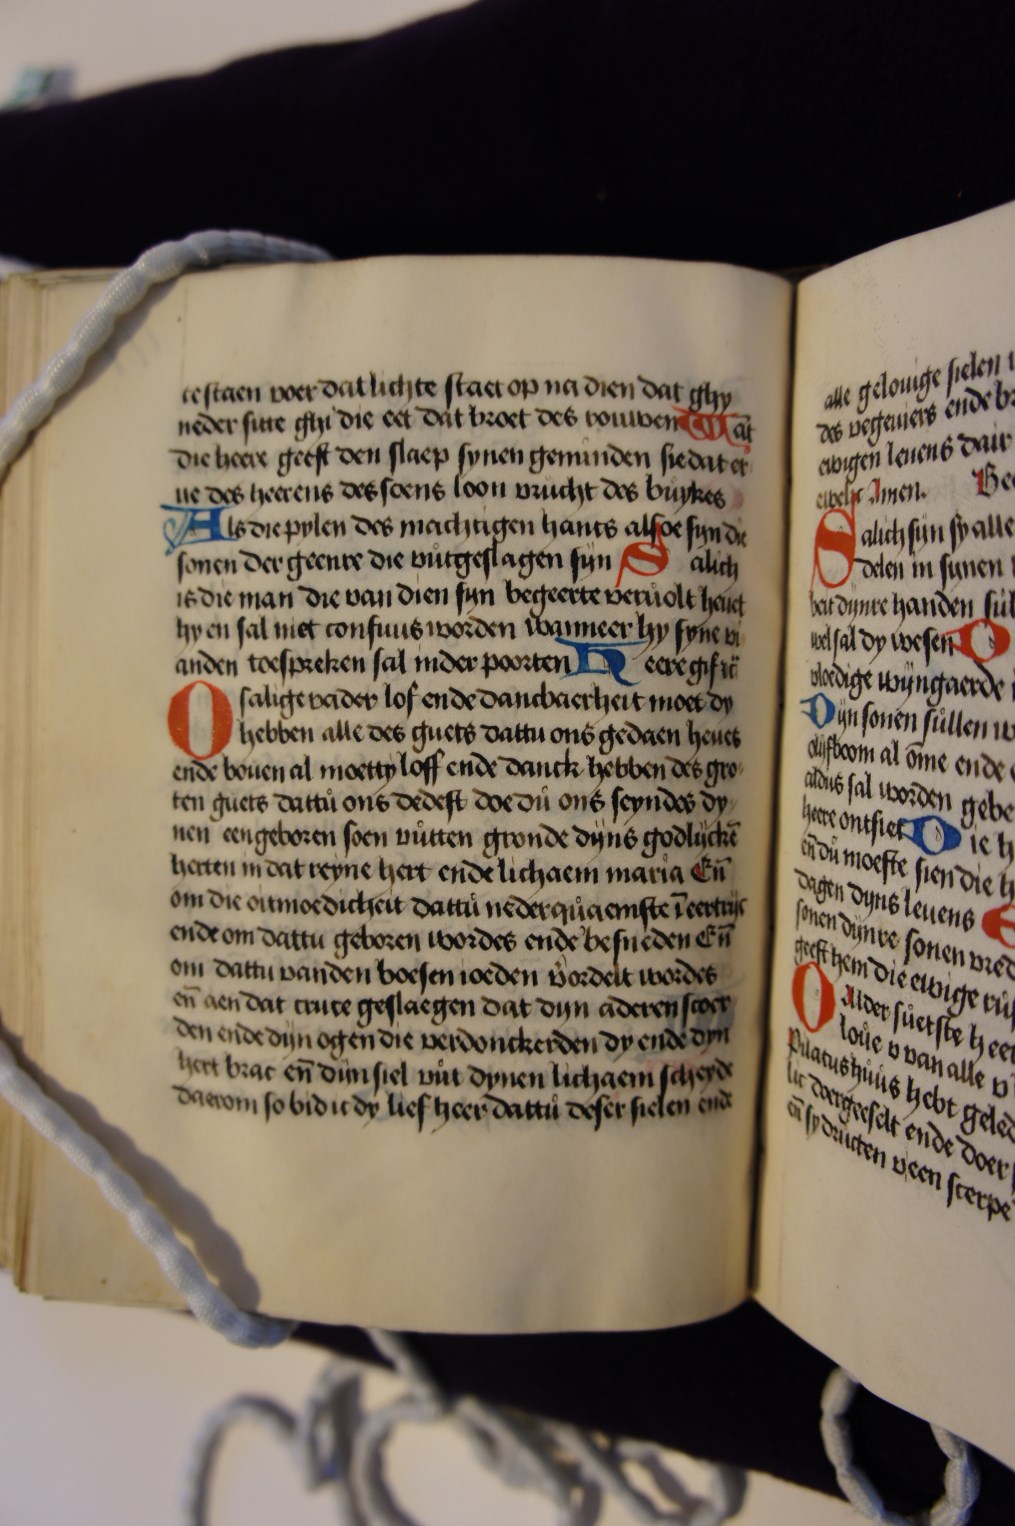 te staen voer dat lichte staet op na dien dat ghy
neder sitte ghi die eet dat broet des rouwen Wāt
die heere geeft den slaep synen geminden sie dat er
ue des heerens des soens loon vrucht des buykes
Als die pylen des machtigen hants alsoe syn die
sonen der geenre die vůtgeslagen sÿn Salich
is die man die van dien syn begeerte vervůlt heuet
hy en sal niet confuus worden wanneer hy syne vi
anden toespreken sal in der poorten Heere gif
O salige vader lof ende dancbaerheit moet dy
hebben alle des guets dattu ons gedaen heues
ende bouen al moetty loff ende danck hebben des gro
ten guets dattů ons dedest doe dů ons seyndes dy
nen eengeboren soen vůtten gronde dÿns godlÿckē
herten in dat reyne hert ende lichaem maria En̄
om die oitmoedicheit dattů nederqůaemste ī eertrijc
ende om dattu geboren wordes ende besneden En̄
om dattu vanden boesen ioeden v̊ordelt wordes
en̄ aen dat cruce geslaegen dat dyn aderen scoer
den ende dÿn ogen die verdonckerden dy ende dyn
hert brac en̄ dÿn siel vůt dynen lichaem scheyde
daerom so bid ic dy lief heer dattů deser sielen ende
alle gelouige sielen
des vegeuiers ende
ewigen leuens dair
Amen.
Salich sÿn sy alle
delen in synen
beit dynre handen sůl
wel sal dy wesen
vloedige wÿngaerde
Dÿn sonen sůllen
olÿfboom al ōme ende
aldus sal worden gebe
heere ontsiet Die h
en̄ dů moeste sien die h
dagen dÿns leuens
sonen dÿnre sonen vred
geeft hem die ewige
O Alder sůetste heer
loůe v van alle
Pilatus hůůs hebt geled
doergeeselt ende doer
en̄ sy dructen veen scerpe